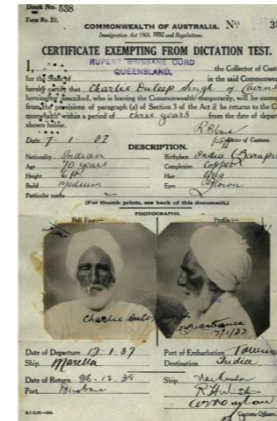 Book No. 538
Form No. 21.
COMMONWEALTH OF AUSTRALIA. No. 3
Immigration Act 1901-1932 and Regulations.
CERTIFICATE EXEMPTING FROM DICTATION TEST.
I, RUPERT BRISBANE CURD the Collector of Customs
for the State of QUEENSLAND, in the said Commonwealth
hereby certify that Charlie Duleep Singh of Cairns
hereinafter described, who is leaving the Commonwealth temporarily, will be exempted
from the provisions of paragraph (a) of Section 3 of the Act if he returns to the Commonwealth
within a period of three years from the date of departure
shown below.
Collector of Customs.
Date 7.1.37
DESCRIPTION.
Nationality Indian Birthplace India
Age 70 years Complexion Copper
Height Hair Grey
Build Medium Eyes Brown
Particular marks
(For thumb prints, see back of this document.)
PHOTOGRAPHS.
Full Face Profile
Charlie Duleep Singh
7/1/37
Date of Departure 13.1.37 Port of Embarkation
Ship Marella Destination India
Date of Return Ship
Port Brisbane
Customs Officer.